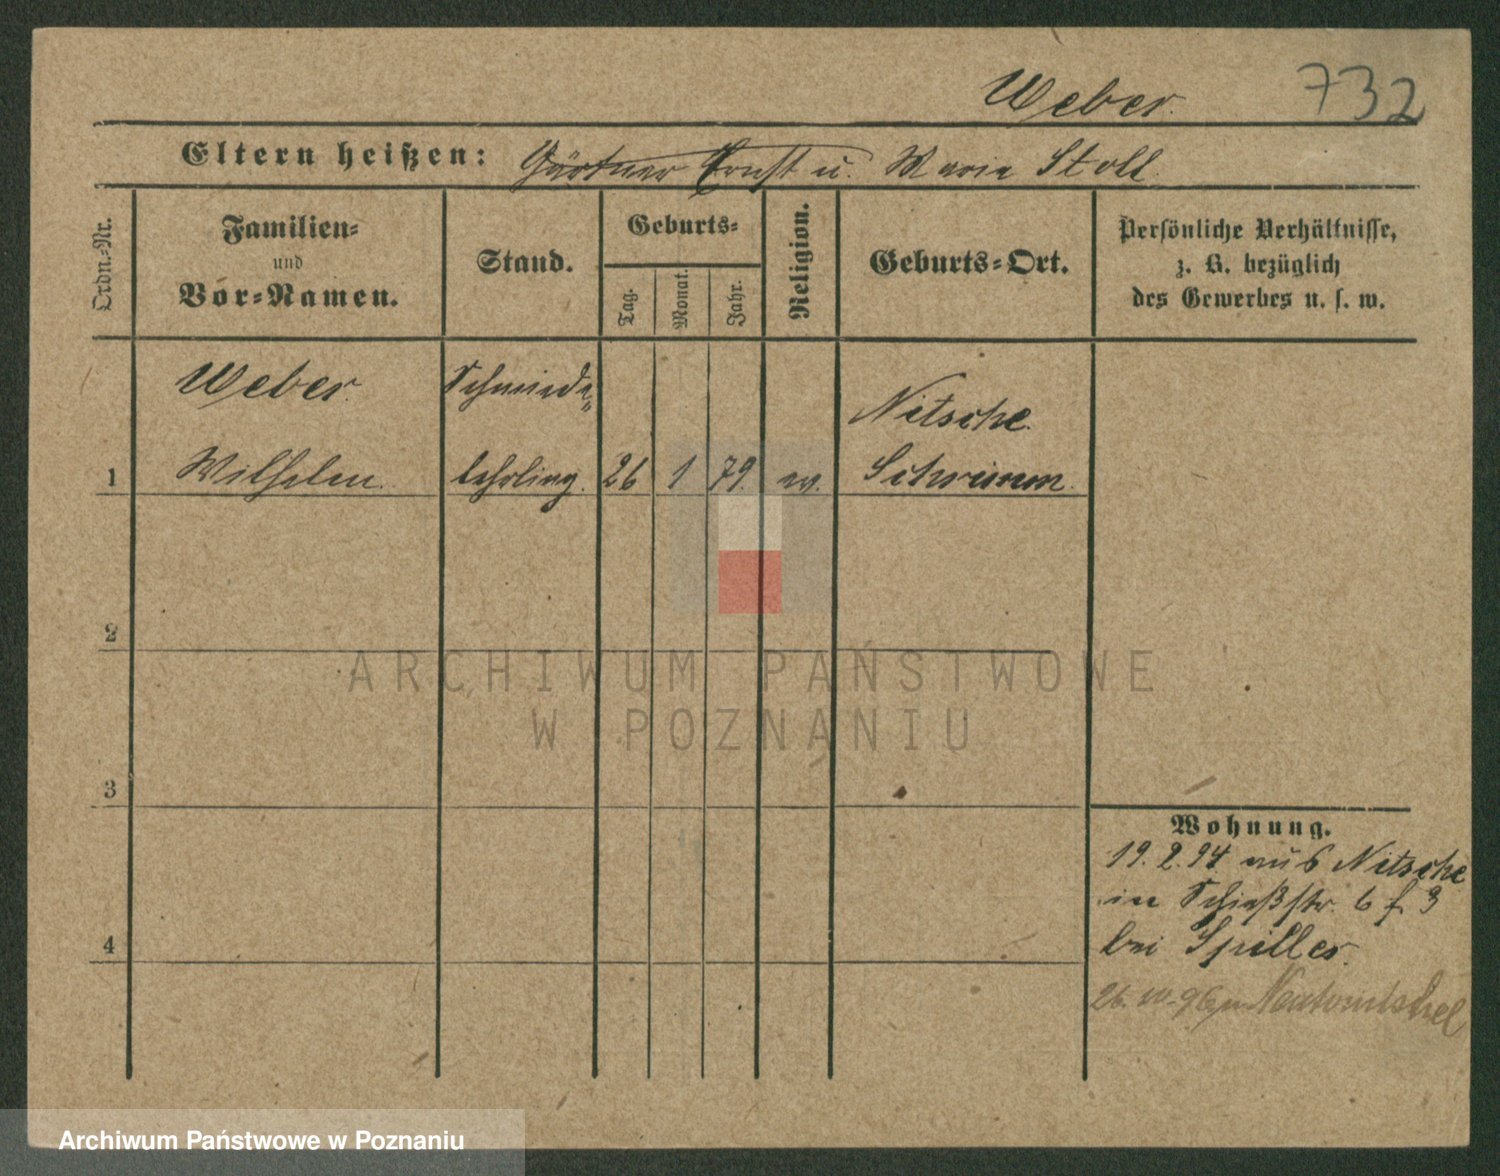 Weber. 732
Eltern heißen: Gärtner Ernst u. Maria Stoll.
Ordn.-Nr.
Familien-
und
Vor-Namen.
Stand.
Geburts-
Tag.
Monat.
Jahr.
Religion.
Geburts-Ort.
Persönliche Verhältnisse,
z. B. bezüglich
des Gewerbes u. s. w.
Weber. Schmiede-
Nitsche.
1 Wilhelm. lehrling. 26 1 79. ev. Schrimm.
2
3
4
Wohnung.
19. 2. 94 aus Nitsche
in Schießstr. 6 f. 3
bei Spiller.
26. 10. 96 n Neutomischel
ARCHIWUM PAŃSTWOWE
W POZNANIU
Archiwum Państwowe w Poznaniu